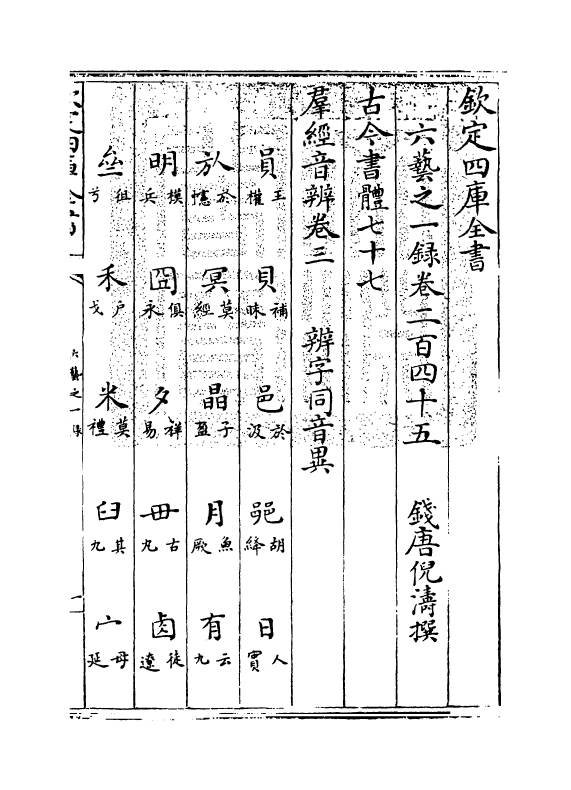 欽定四庫全書
六藝之一録卷二百四十五 錢唐倪濤撰
古今書體七十七
羣經音辨卷三 辨字同音異
員王權 貝補昧 邑於汲 𨛜胡絳 日人實
㫃於幰 冥莫經 晶子盈 月魚厥 有云九
明模兵 囧俱永 夕祥易 毌古丸 卤徒遼
徂兮 禾户戈 米莫禮 臼其九 宀毋延
六藝之一録